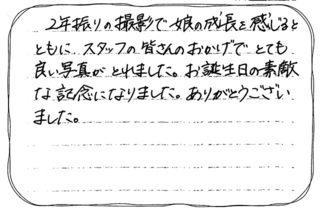 2年振りの撮影で娘の成長を感じると
ともに、スタッフの皆さんのおかげでとても
良い写真がとれました。お誕生日の素敵
な記念になりました。ありがとうござい
ました。